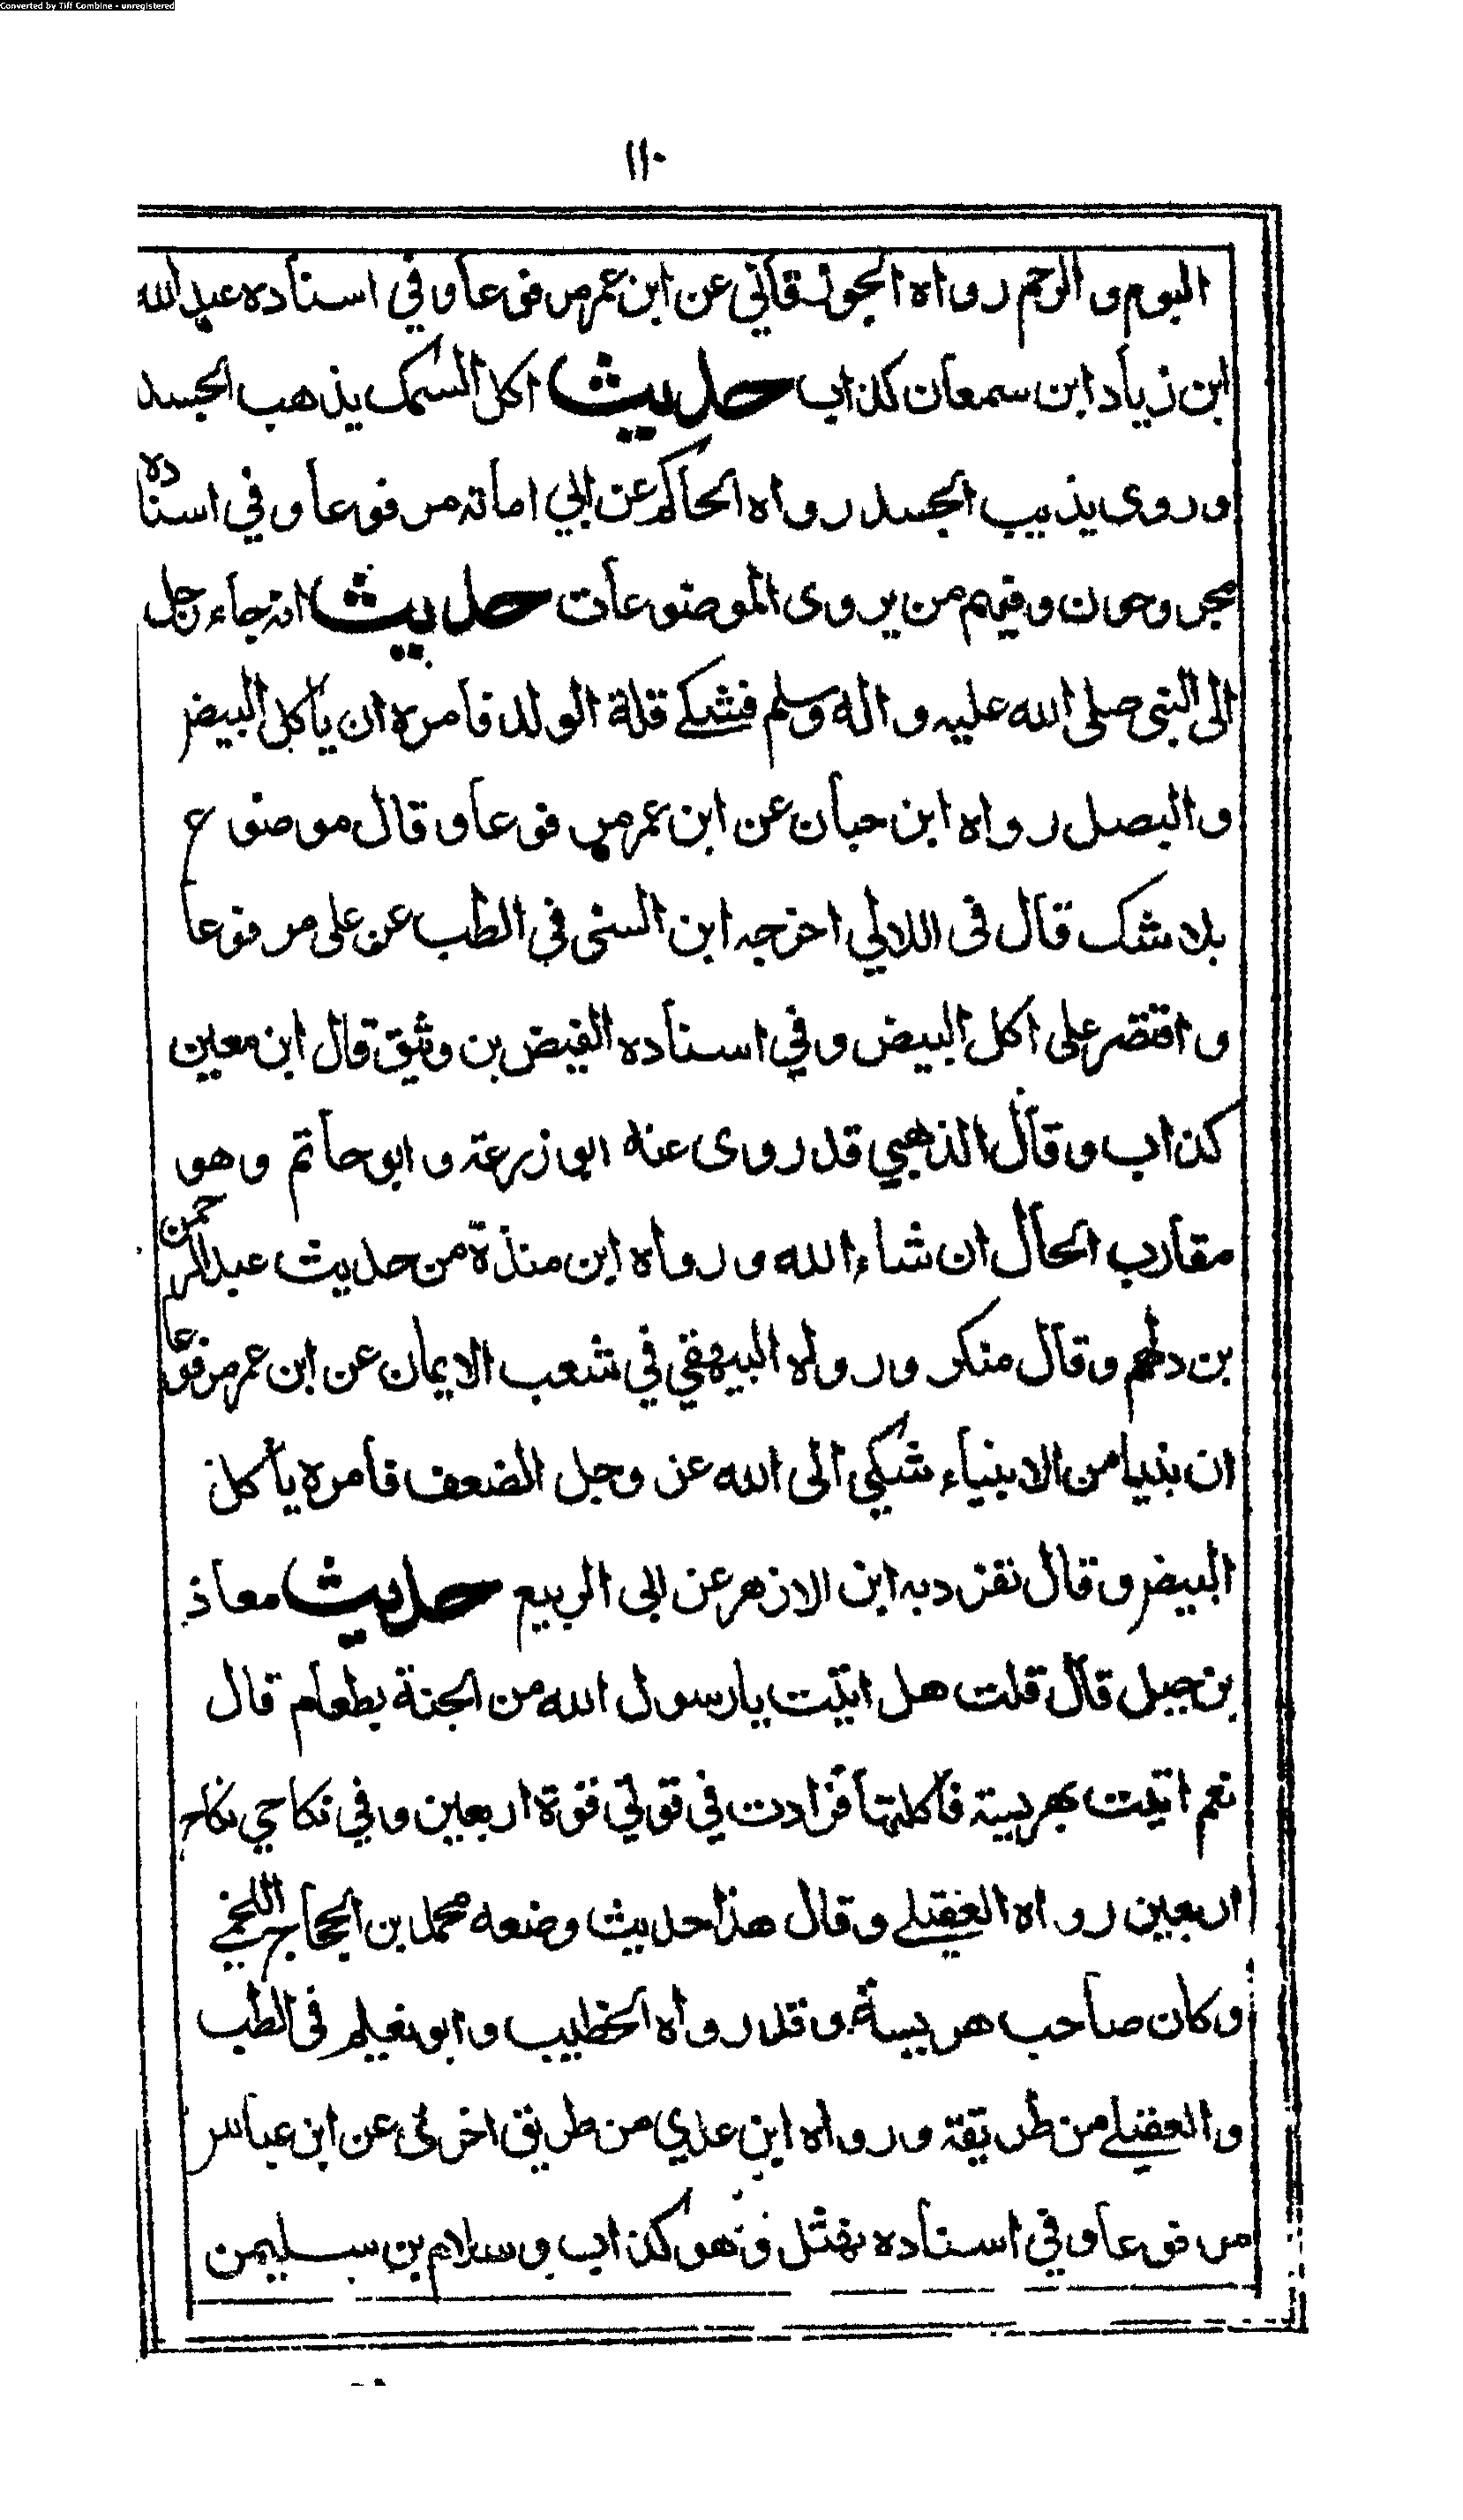 Converted by Tiff Combine - unregistered
١١٠
البوم و الرخم رواه الجوزقاني عن ابن عمر مرفوعا وفي اسناده عبد الله
ابن زياد ابن سمعان كذاب حديث اكل السمك يذهب الجسد
وروى يذيب الجسد رواه الحاكم عن ابي امامة مرفوعا وفي اسناده
مجروحون وفيهم من يروى الموضوعات حديث انه جاء رجل
الى النبي صلى الله عليه واله وسلم فشكى قلة الولد فامره ان يأكل البيض
والبصل رواه ابن حبان عن ابن عمر مرفوعا وقال موضوع
بلا شك قال فى اللالي اخرجه ابن السنى في الطب عن على مرفوعا
و اقتصر على اكل البيض وفي اسناده الفيض بن وثيق قال ابن معين
كذاب وقال الذهبي قد روى عنه ابو زرعة وابو حاتم وهو
مقارب الحال ان شاء الله ورواه ابن مندة من حديث عبد الرحمن
بن دلهم وقال منكر ورواه البيهقي في شعب الايمان عن ابن عمر مرفوعا
ان نبيا من الانبياء شكي الى الله عز وجل الضعف فأمره يأكل
البيض وقال تفرد به ابن الازهر عن ابى الربيع حديث معاذ
بن جبل قال قلت هل اتيت يا رسول الله من الجنة بطعام قال
نعم اتيت بهريسة فأكلتها فزادت في قوتي قوة اربعين وفي نكاحي نكاح
اربعين رواه العقيلى وقال هذا حديث وضعه محمد بن الحجاج اللخمى
وكان صاحب هريسة وقد رواه الخطيب وابو نعيم فى الطب
والعقيلى من طريقة ورواه ابن عدي من طريق اخرى عن ابن عباس
مرفوعا وفي اسناده نهشل وهو كذاب وسلام بن سليمن